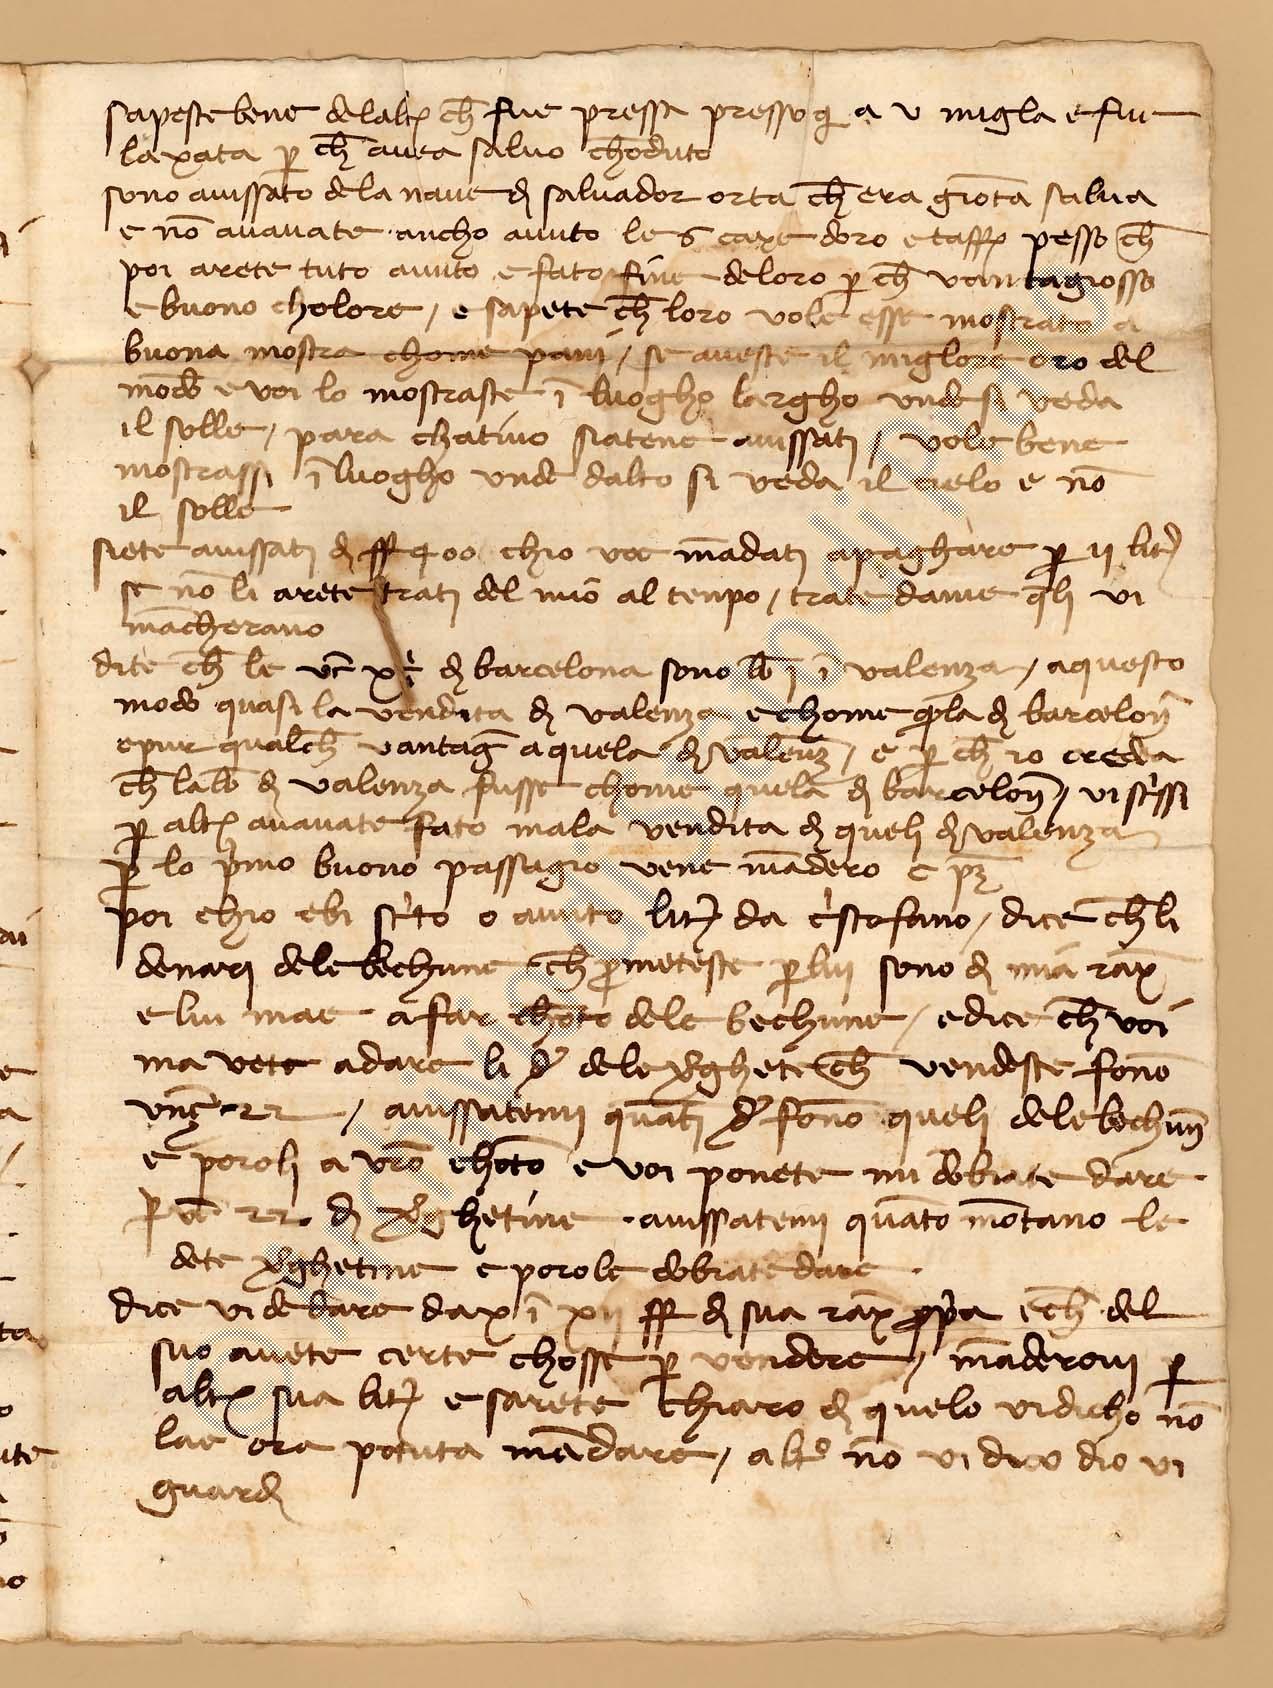 sapeste bene delaltr̄ ch̄ fue pressa presso q̄ a v miglia e fue
laxata p̄ ch̄ avea salvo chōduto
sono avissato de la nave d̄ salvador orta ch̄ era giōta salva
e nō avavate ancho avuto le 6 caxe doro e pesso ch̄
poi arete tuto avuto e fato fine deloro p̄ ch̄ vantagiosso
e buono cholore / e sapete ch̄ loro vole esse mostrato a
buona mostra chome pani / se aveste il miglore oro del
mōdo e voi lo mostraste ī luogho largho unde si veda
il solle / para chativo siatene avissati / vole bene
mostrassi ī luogho unde dalto si veda il cielo e nō
il solle
siete avissati d̄ ff 400 chio vo mādati apaghare p̄ ij litr̄
se nō li arete trati del mio al tenpo / trate dame q̄li vi
mācherano
dite ch̄ le d̄ barcelona sono ī valenza / aquesto
modo quasi la vendita d̄ valenza e chome q̄la d̄ barcelon̄
epur qualch̄ vantaḡ a quela d̄ valenz̄ / e p̄ ch̄ io credea
ch̄ lalb̄ d̄ valenza fusse chome quela d̄ barcelon̄ / vi sc'issi
p̄ altr̄ avavate fato mala vendita d̄ queli d̄ valenza
p̄ lo p'mo buono passagio vene māderò c pz̄
poi chio ebi sc'to o avuto litr̄ da c'stofano / dice ch̄ li
denari dele bechune ch̄ p̄meteste p̄ lui sono d̄ mia rax̄
e lui mae a far chōto dele bechune / e dice ch̄ voi
ma vete a dare li d' dele v'ghete ch̄ vendeste fono
22 / avissatemi quāti d' fono queli dele bechun̄
e poroli a vr̄o chōto e voi ponete mi dobiate dare
p̄ 22 d̄ v'ghetine avissatemi quāto mōtano le
dete v'ghetine e porole dobiate dare
dice vi de dare dax ī xij ff d̄ sua rax̄ p̄p'a e ch̄ del
suo avete certe chosse p̄ vendere / māderovi p̄
altr̄ sua litr̄ e sarete chiaro d̄ quelo vi dicho nō
lae ora potuta mādare / alt' nō vi dico dio vi
guardi